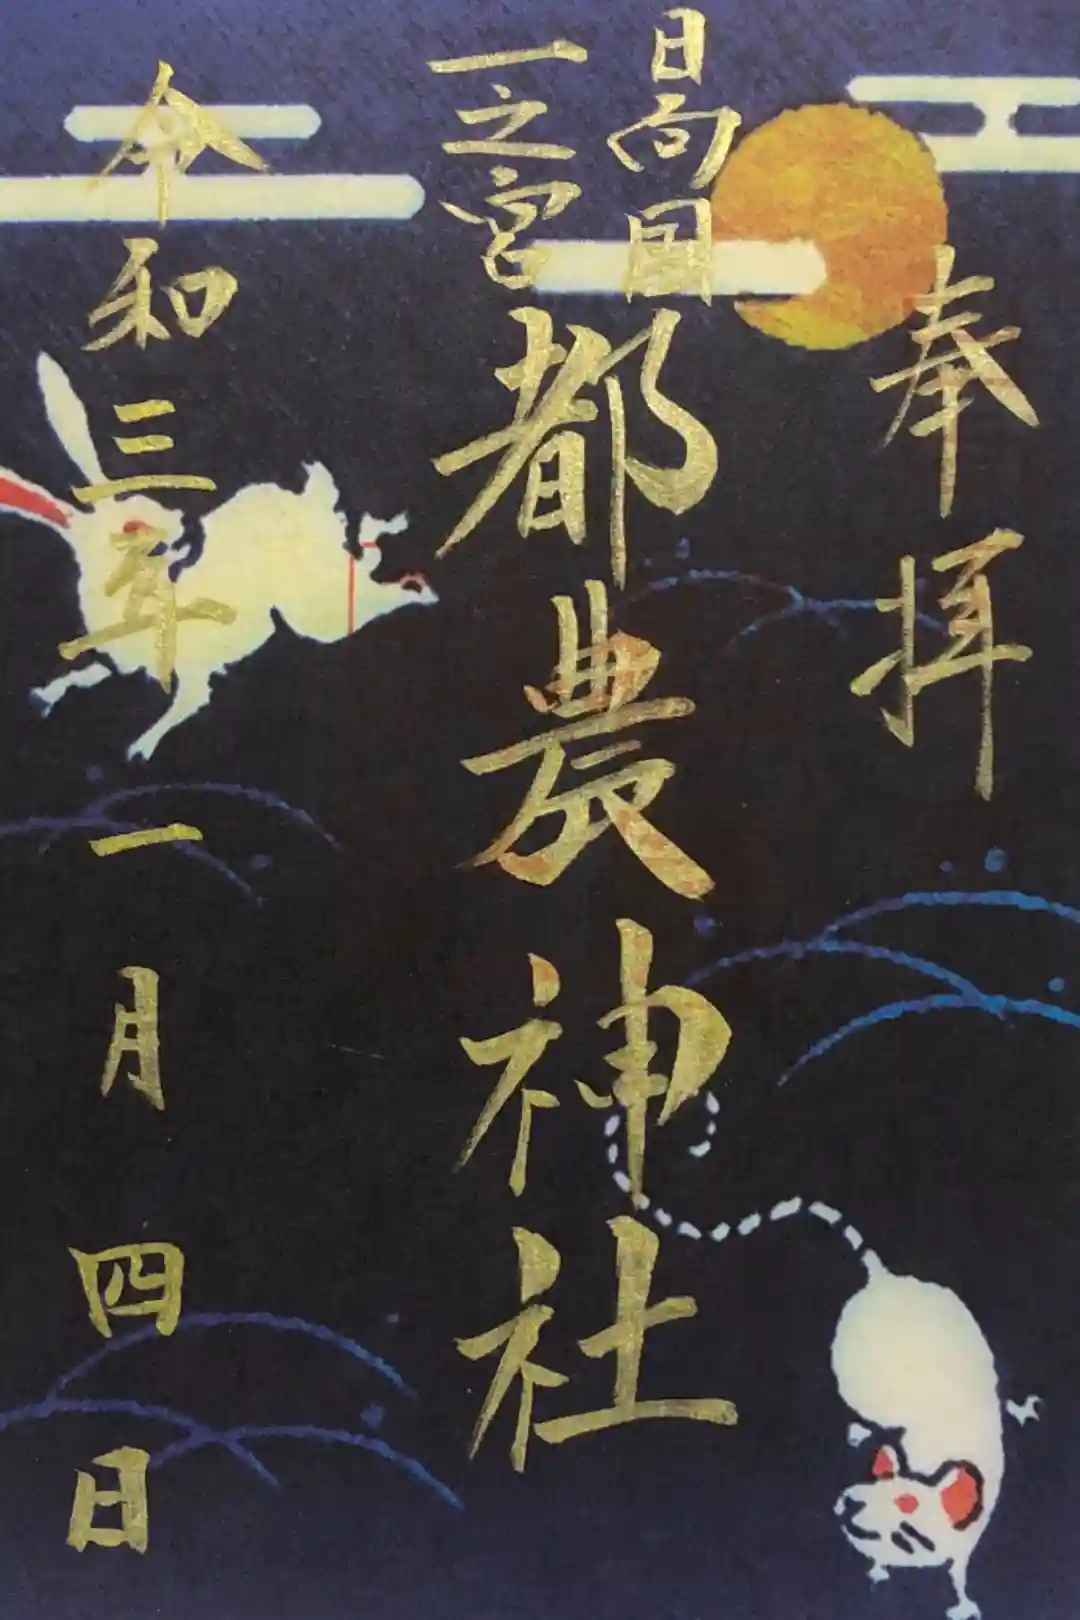 奉拝
日向国
一之宮
都農神社
令和三年一月四日